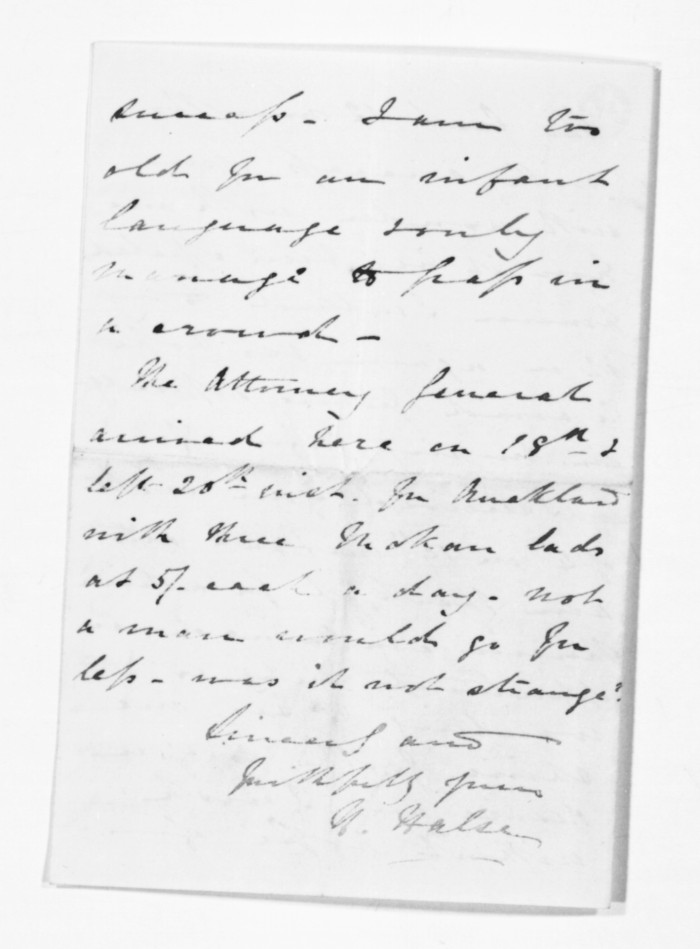 success - I am too
old for an infant
language & only
manage to pass in
a crowd -
The Attorney General
arrived here on 18th &
left 20th inst. for Auckland
with three Mokau lads
at 5/- each a day - not
a man would go for
less - was it not strange?
Sincerely and
faithfully yours
H. Halse